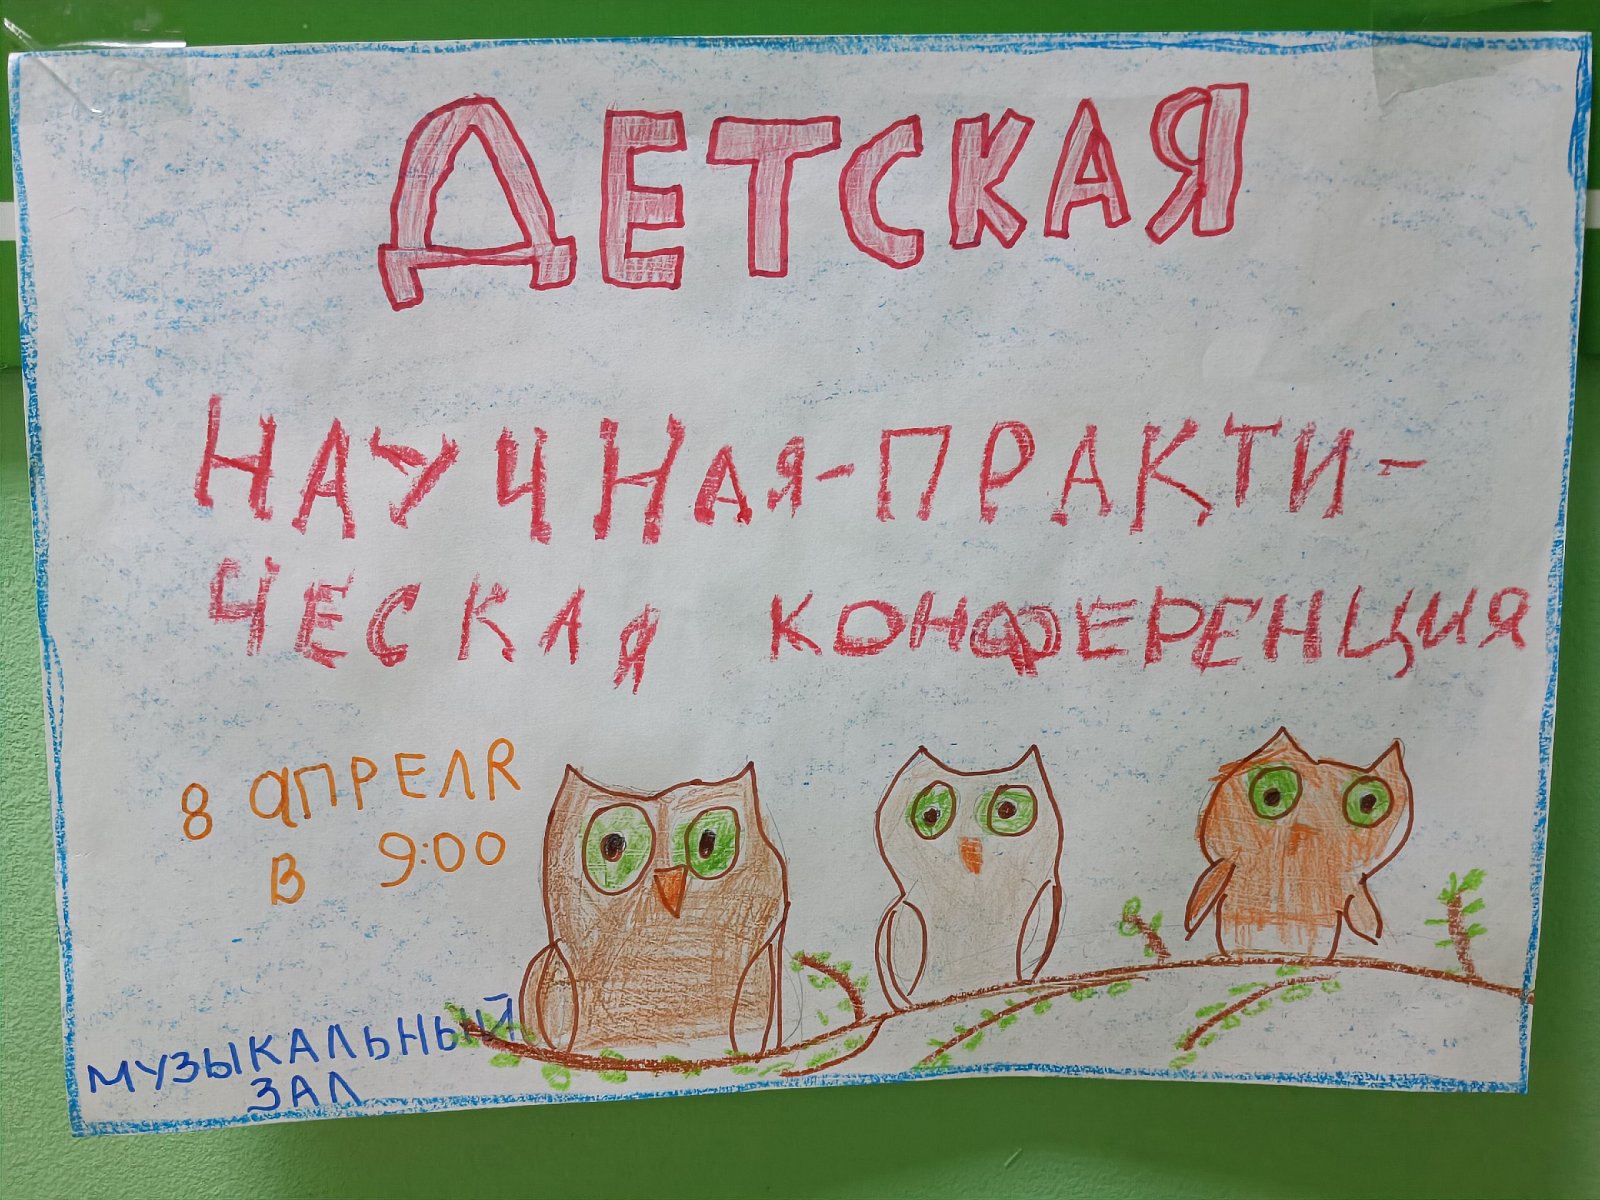 ДЕТСКАЯ
НАУЧНАЯ-ПРАКТИ-
ЧЕСКАЯ КОНФЕРЕНЦИЯ
8 АПРЕЛЯ
В 9:00
МУЗЫКАЛЬНЫЙ
ЗАЛ